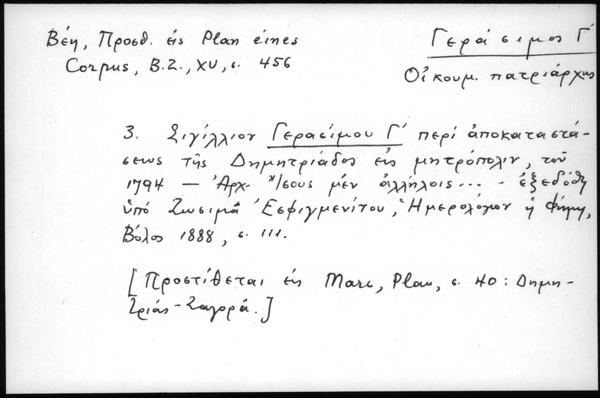 Βέη, Προσθ. εἰς Plan eines
Corpus, B.Z., XV, σ. 456
Γεράσιμος Γ΄
Οἰκουμ. πατριάρχης
3. Σιγίλλιον Γερασίμου Γ΄ περί ἀποκαταστά-
σεως τῆς Δημητριάδος εἰς μητρόπολιν, τοῦ
1794 — Ἀρχ. Ἴσους μέν ἀλλήλοις... - ἐξεδόθη
ὑπό Ζωσιμᾶ Ἐσφιγμενίτου, Ἡμερολόγιον ἡ Φήμη,
Βόλος 1888, σ. 111.
[Προστίθεται εἰς Marc, Plan, σ. 40: Δημη-
τριάς-Ζαγορά.]